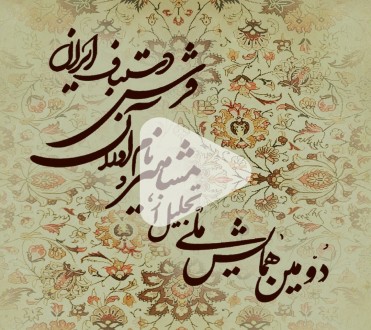 دومین همایش ملی
تجلیل از
مشاهیر و نام آوران
فرش دستباف ایران